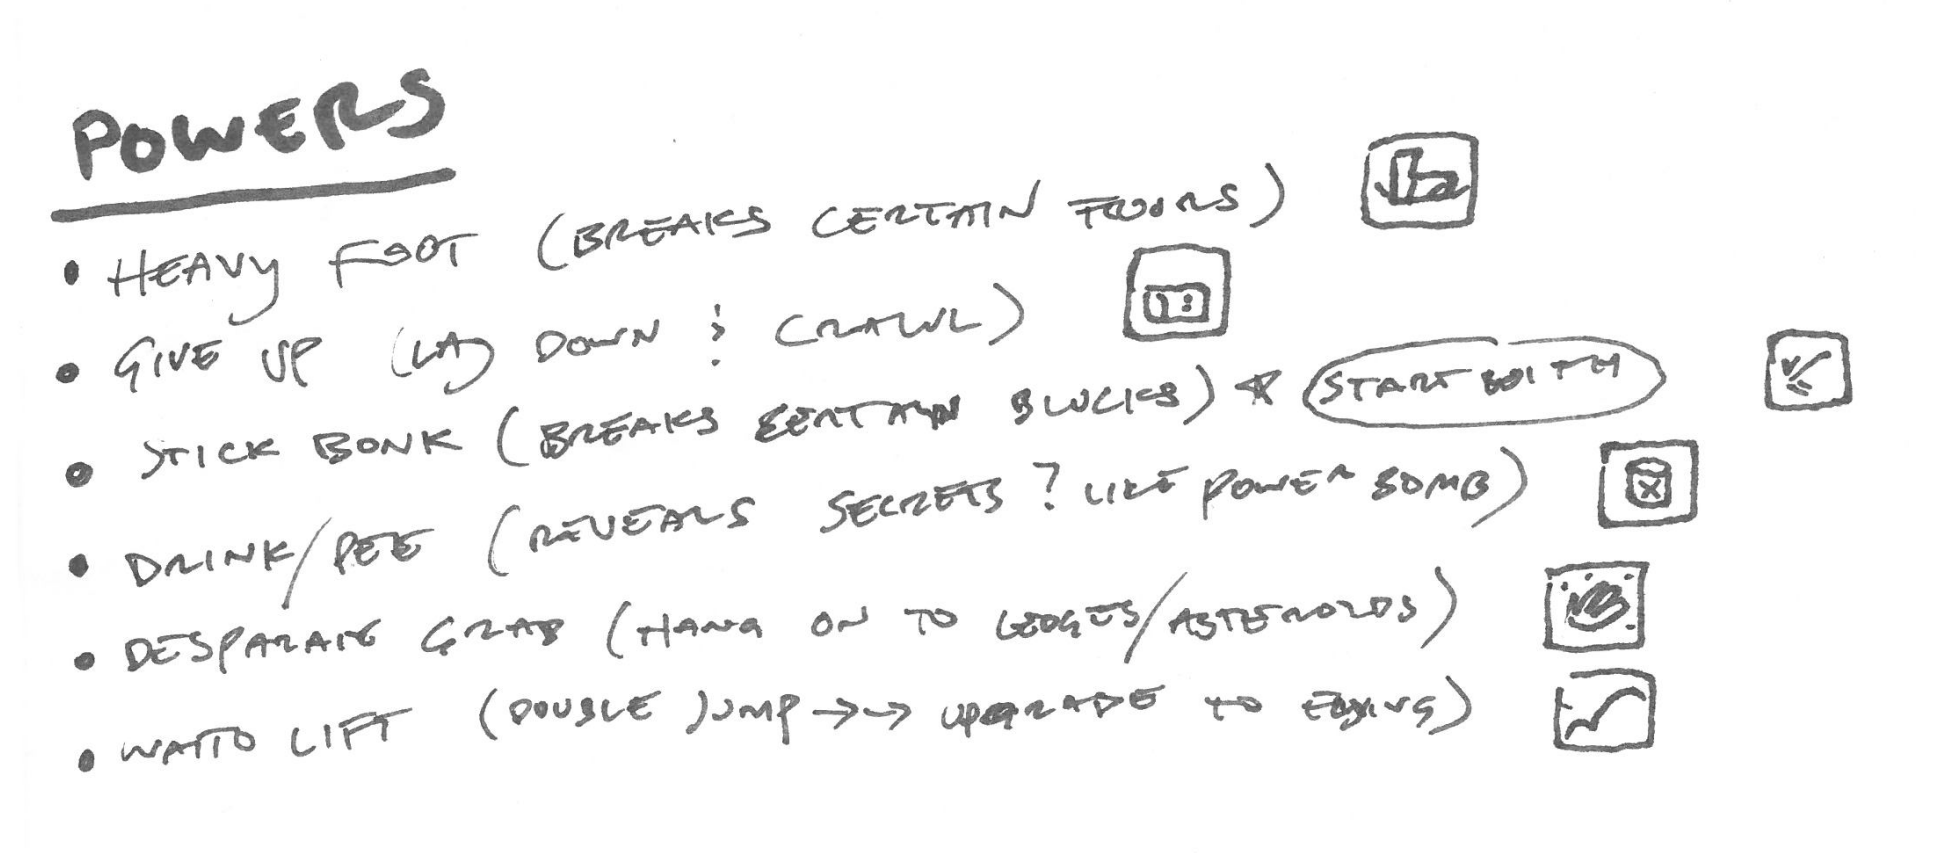 POWERS
• HEAVY FOOT (BREAKS CERTAIN FLOORS)
• GIVE UP (LAY DOWN & CRAWL)
• STICK BONK (BREAKS CERTAIN BLOCKS) ★ START WITH
• DRINK/PEE (REVEALS SECRETS? LIKE POWER BOMB)
• DESPARATE GRAB (HANG ON TO LEDGES/ASTEROIDS)
• WATTO LIFT (DOUBLE JUMP →→ UPGRADE TO FLYING)